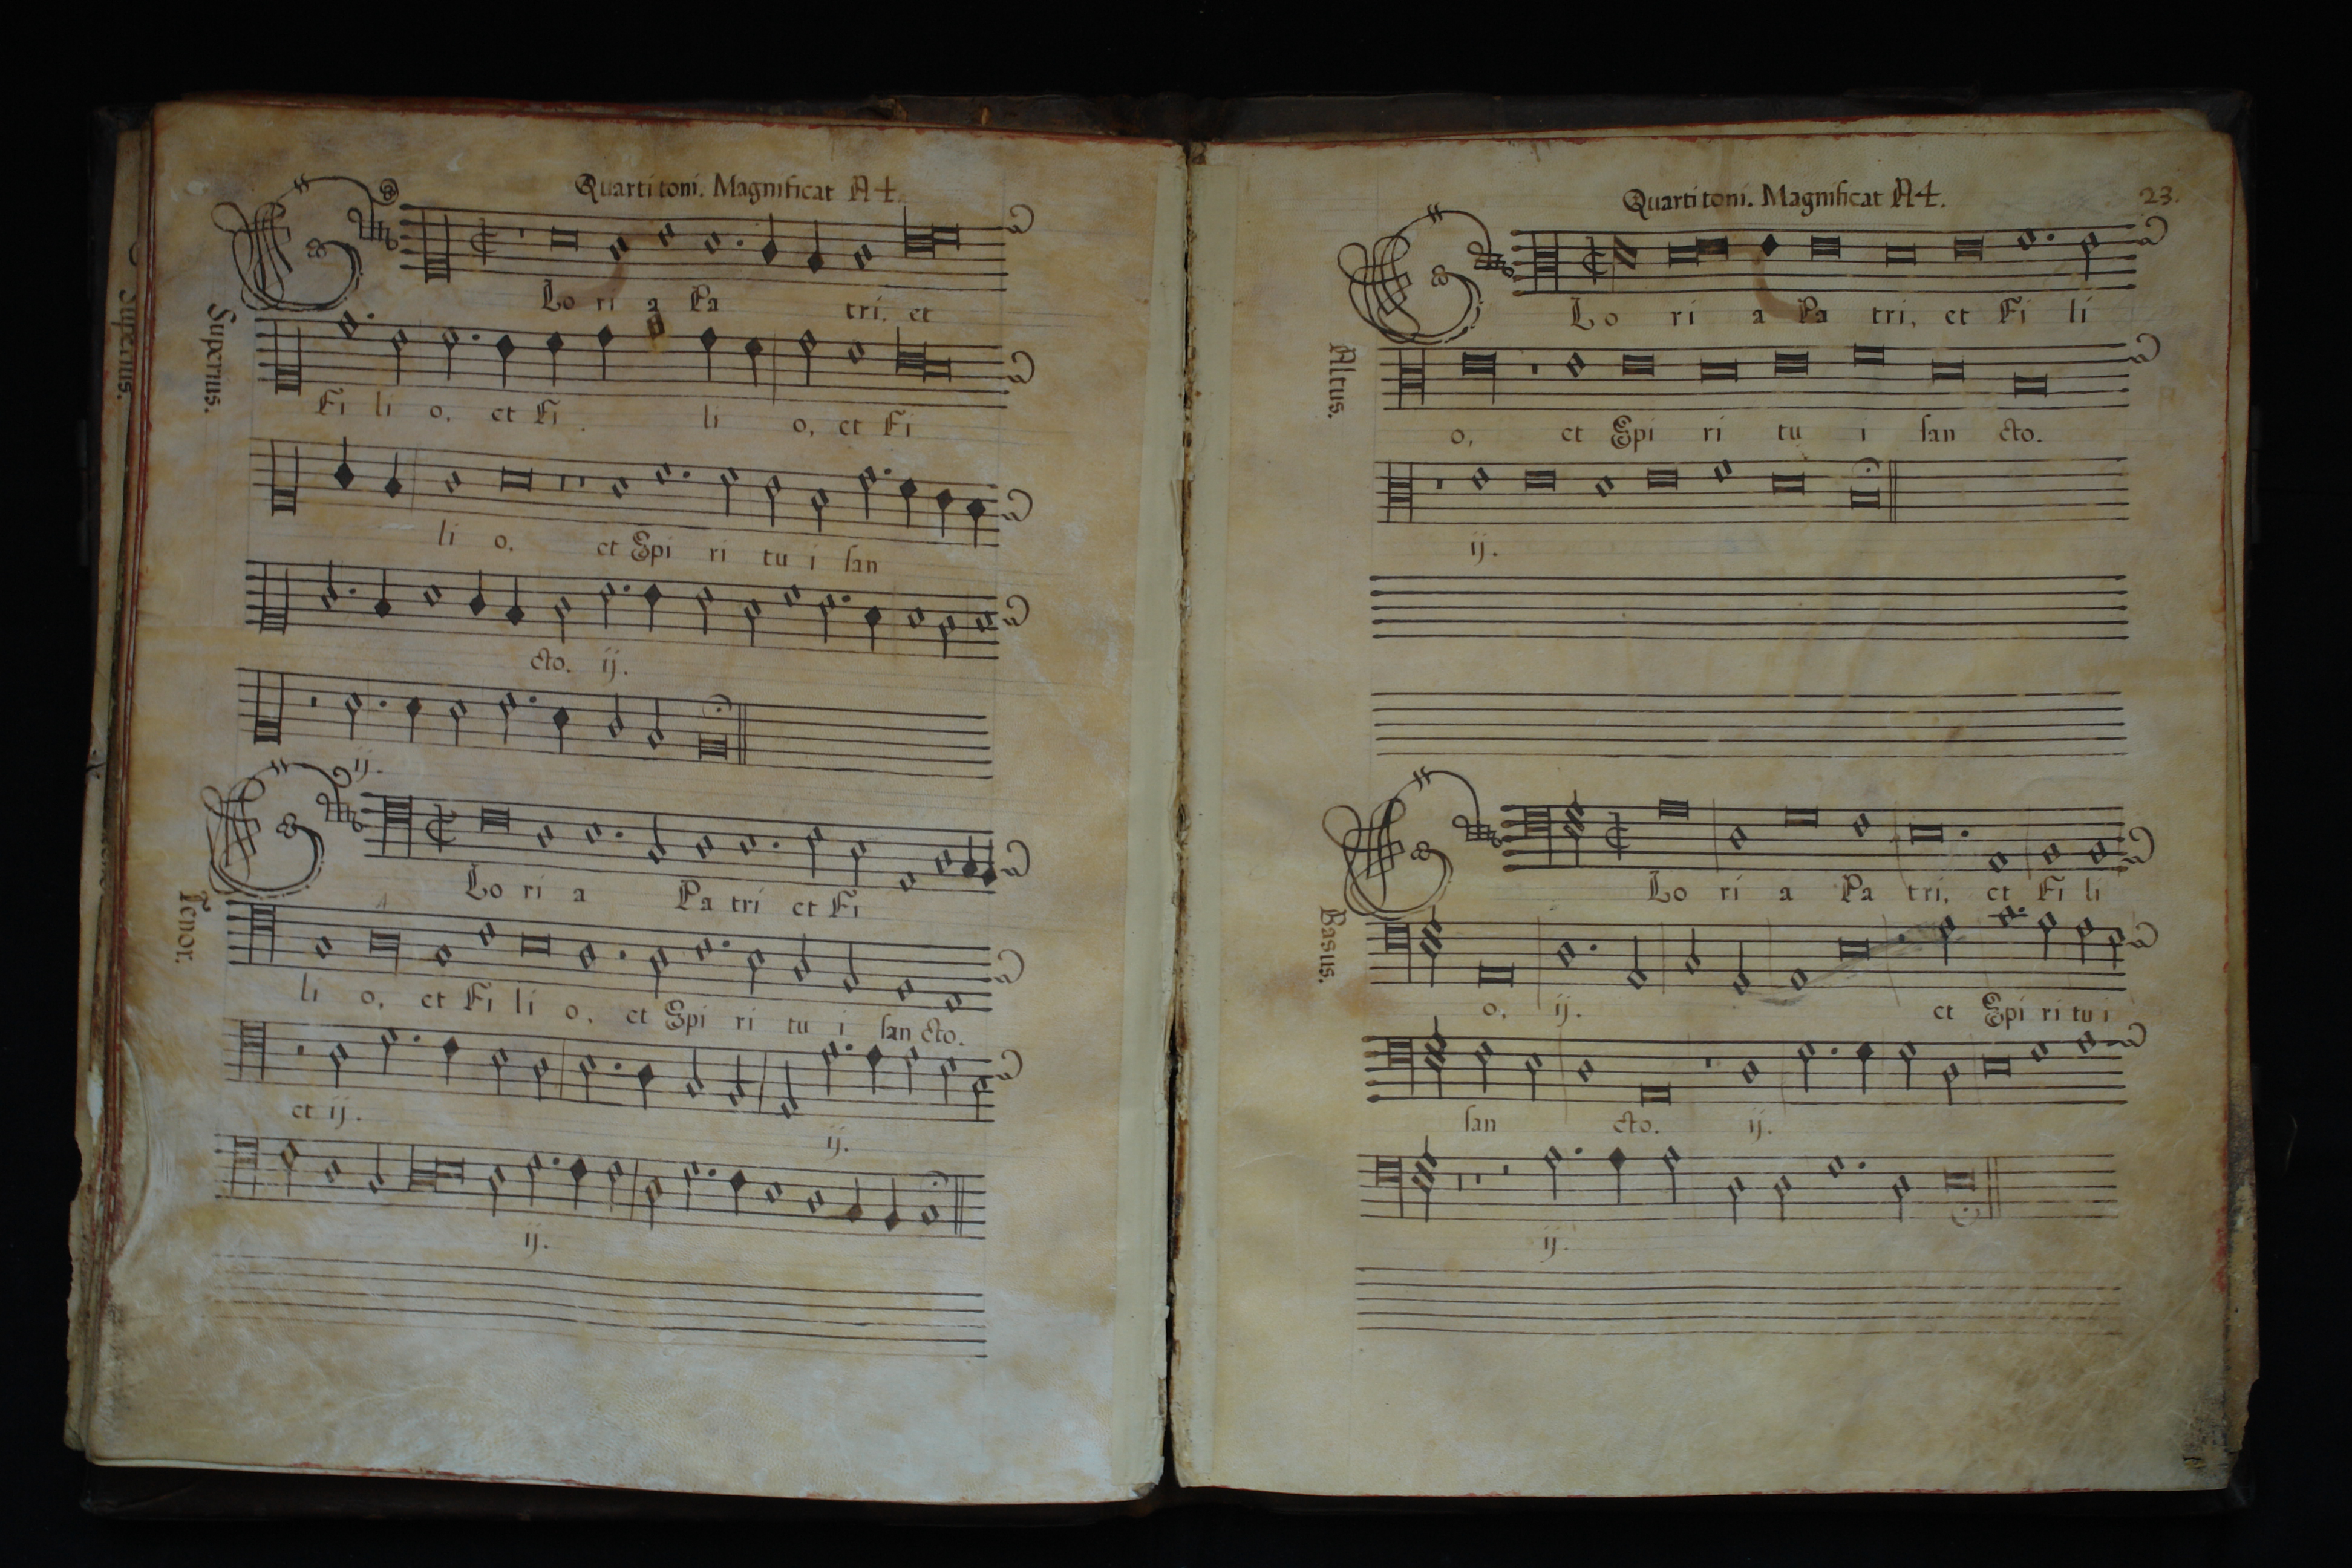 Quarti toni. Magnificat A4.
Superius.
Superius.
GLo ri a Pa tri, et
Fi li o, et Fi li o, et Fi
li o, et Spi ri tu i san
cto. ij.
ij.
Tenor.
GLo ri a Pa tri et Fi
li o, et Fi li o, et Spi ri tu i san cto.
et ij. ij.
ij.
Quarti toni. Magnificat A4.
23.
Altus.
GLo ri a Pa tri, et Fi li
o, et Spi ri tu i san cto.
ij.
Basus.
GLo ri a Pa tri, et Fi li
o, ij. et Spi ri tu i
san cto. ij.
ij.